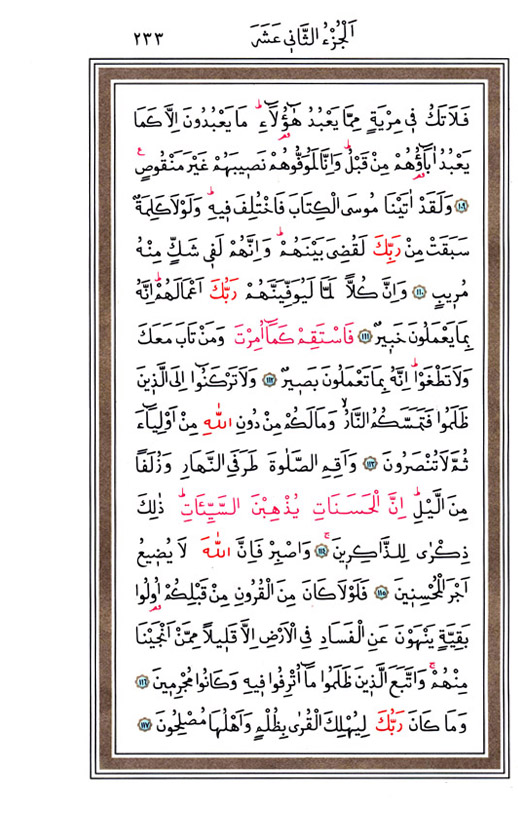 اَلْجُزْءُ الثَّانٖي عَشَرَ ٢٣٣
فَلَا تَكُ فٖي مِرْيَةٍ مِمَّا يَعْبُدُ هٰٓؤُ۬لَٓاءِۜ مَا يَعْبُدُونَ اِلَّا كَمَا
يَعْبُدُ اٰبَٓاؤُ۬هُمْ مِنْ قَبْلُۜ وَاِنَّا لَمُوَفُّوهُمْ نَصٖيبَهُمْ غَيْرَ مَنْقُوصٍۚ
﴿١٠٩﴾ وَلَقَدْ اٰتَيْنَا مُوسَى الْكِتَابَ فَاخْتُلِفَ فٖيهِۜ وَلَوْلَا كَلِمَةٌ
سَبَقَتْ مِنْ رَبِّكَ لَقُضِيَ بَيْنَهُمْۜ وَاِنَّهُمْ لَفٖي شَكٍّ مِنْهُ
مُرٖيبٍ ﴿١١٠﴾ وَاِنَّ كُلًّا لَمَّا لَيُوَفِّيَنَّهُمْ رَبُّكَ اَعْمَالَهُمْۜ اِنَّهُ
بِمَا يَعْمَلُونَ خَبٖيرٌ ﴿١١١﴾ فَاسْتَقِمْ كَمَٓا اُمِرْتَ وَمَنْ تَابَ مَعَكَ
وَلَا تَطْغَوْاۜ اِنَّهُ بِمَا تَعْمَلُونَ بَصٖيرٌ ﴿١١٢﴾ وَلَا تَرْكَنُٓوا اِلَى الَّذٖينَ
ظَلَمُوا فَتَمَسَّكُمُ النَّارُۙ وَمَا لَكُمْ مِنْ دُونِ اللّٰهِ مِنْ اَوْلِيَٓاءَ
ثُمَّ لَا تُنْصَرُونَ ﴿١١٣﴾ وَاَقِمِ الصَّلٰوةَ طَرَفَيِ النَّهَارِ وَزُلَفًا
مِنَ الَّيْلِۜ اِنَّ الْحَسَنَاتِ يُذْهِبْنَ السَّيِّـَٔاتِۜ ذٰلِكَ
ذِكْرٰى لِلذَّاكِرٖينَۚ ﴿١١٤﴾ وَاصْبِرْ فَاِنَّ اللّٰهَ لَا يُضٖيعُ
اَجْرَ الْمُحْسِنٖينَ ﴿١١٥﴾ فَلَوْلَا كَانَ مِنَ الْقُرُونِ مِنْ قَبْلِكُمْ اُو۬لُوا
بَقِيَّةٍ يَنْهَوْنَ عَنِ الْفَسَادِ فِي الْاَرْضِ اِلَّا قَلٖيلًا مِمَّنْ اَنْجَيْنَا
مِنْهُمْۚ وَاتَّبَعَ الَّذٖينَ ظَلَمُوا مَٓا اُتْرِفُوا فٖيهِ وَكَانُوا مُجْرِمٖينَ ﴿١١٦﴾
وَمَا كَانَ رَبُّكَ لِيُهْلِكَ الْقُرٰى بِظُلْمٍ وَاَهْلُهَا مُصْلِحُونَ ﴿١١٧﴾